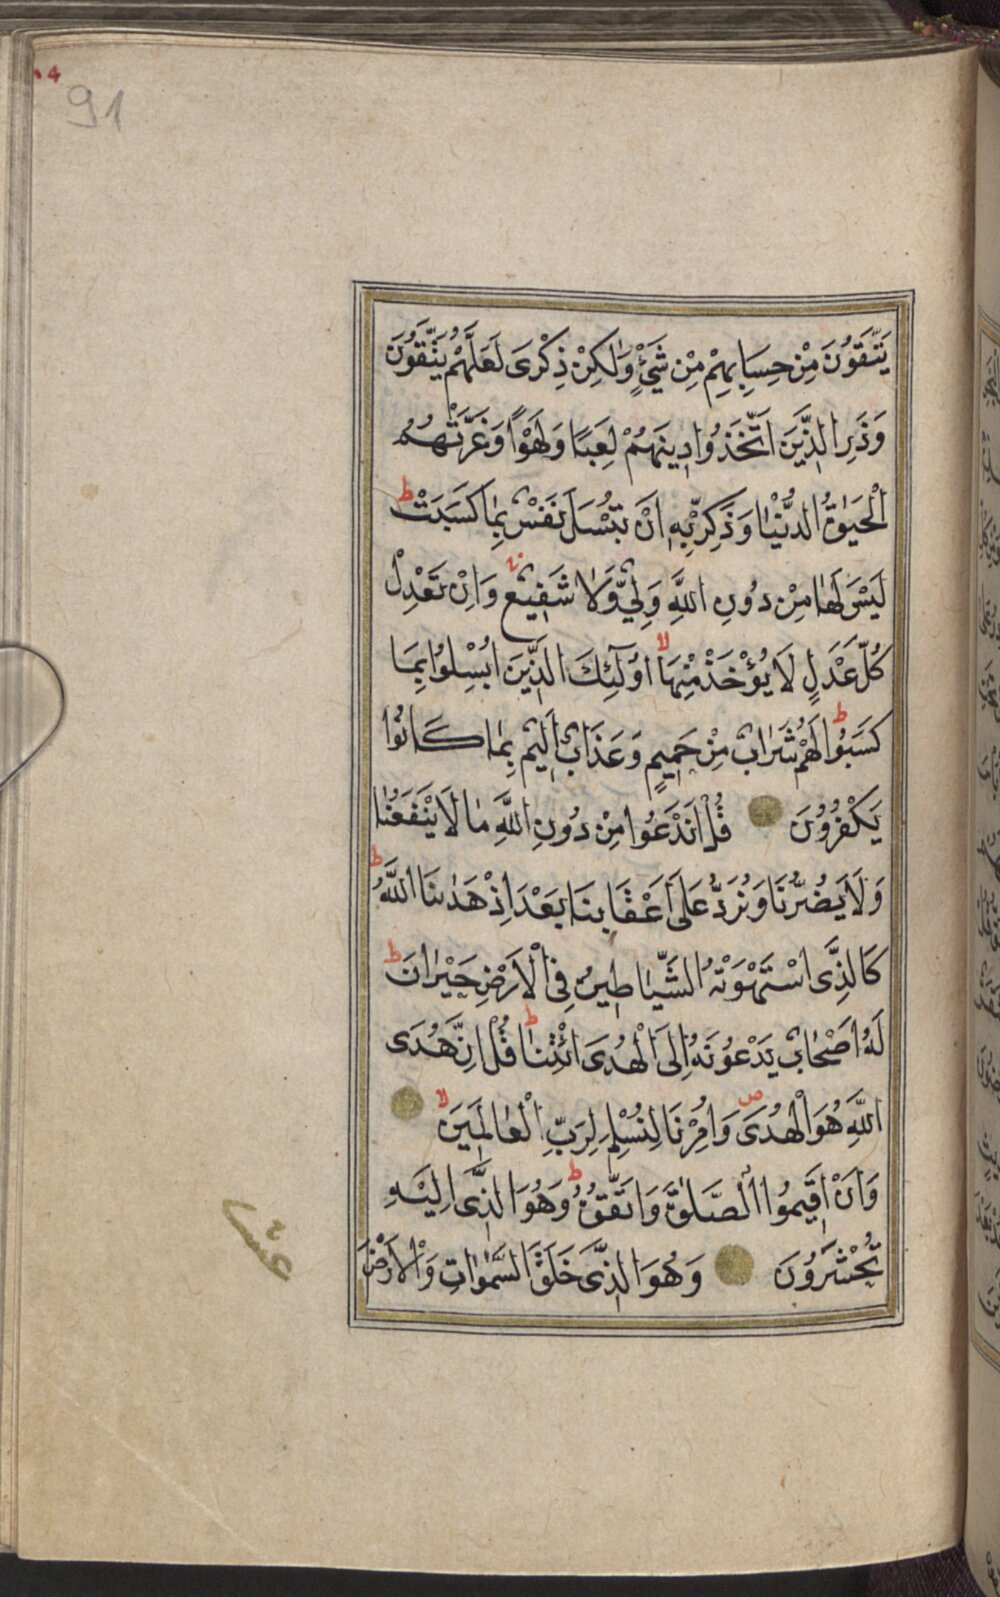 91
يَتَّقُونَ مِنْ حِسَابِهِمْ مِنْ شَيْءٍ وَلٰكِنْ ذِكْرَى لَعَلَّهُمْ يَتَّقُونَ
وَذَرِ الَّذِينَ اتَّخَذُوا دِينَهُمْ لَعِبًا وَلَهْوًا وَغَرَّتْهُمُ
الْحَيٰوةُ الدُّنْيَا وَذَكِّرْ بِهِ اَنْ تُبْسَلَ نَفْسٌ بِمَا كَسَبَتْ ط
لَيْسَ لَهَا مِنْ دُونِ اللَّهِ وَلِيٌّ وَلَا شَفِيعٌ وَاِنْ تَعْدِلْ
كُلَّ عَدْلٍ لَا يُؤْخَذْ مِنْهَا لا اُولٰئِكَ الَّذِينَ اُبْسِلُوا بِمَا
كَسَبُوا ط لَهُمْ شَرَابٌ مِنْ حَمِيمٍ وَعَذَابٌ اَلِيمٌ بِمَا كَانُوا
يَكْفُرُونَ قُلْ اَنَدْعُوا مِنْ دُونِ اللَّهِ مَا لَا يَنْفَعُنَا
وَلَا يَضُرُّنَا وَنُرَدُّ عَلَى اَعْقَابِنَا بَعْدَ اِذْ هَدٰىنَا اللَّهُ ط
كَالَّذِى اسْتَهْوَتْهُ الشَّيَاطِينُ فِى الْاَرْضِ حَيْرَانَ ط
لَهُ اَصْحَابٌ يَدْعُونَهُ اِلَى الْهُدَى ائْتِنَا ط قُلْ اِنَّ هُدَى
اللَّهِ هُوَ الْهُدَى ص وَاُمِرْنَا لِنُسْلِمَ لِرَبِّ الْعَالَمِينَ لا
وَاَنْ اَقِيمُوا الصَّلٰوةَ وَاتَّقُوهُ ط وَهُوَ الَّذِى اِلَيْهِ
تُحْشَرُونَ وَهُوَ الَّذِى خَلَقَ السَّمٰوَاتِ وَالْاَرْضَ
عشر